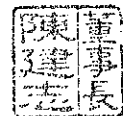 董事長
陳建志